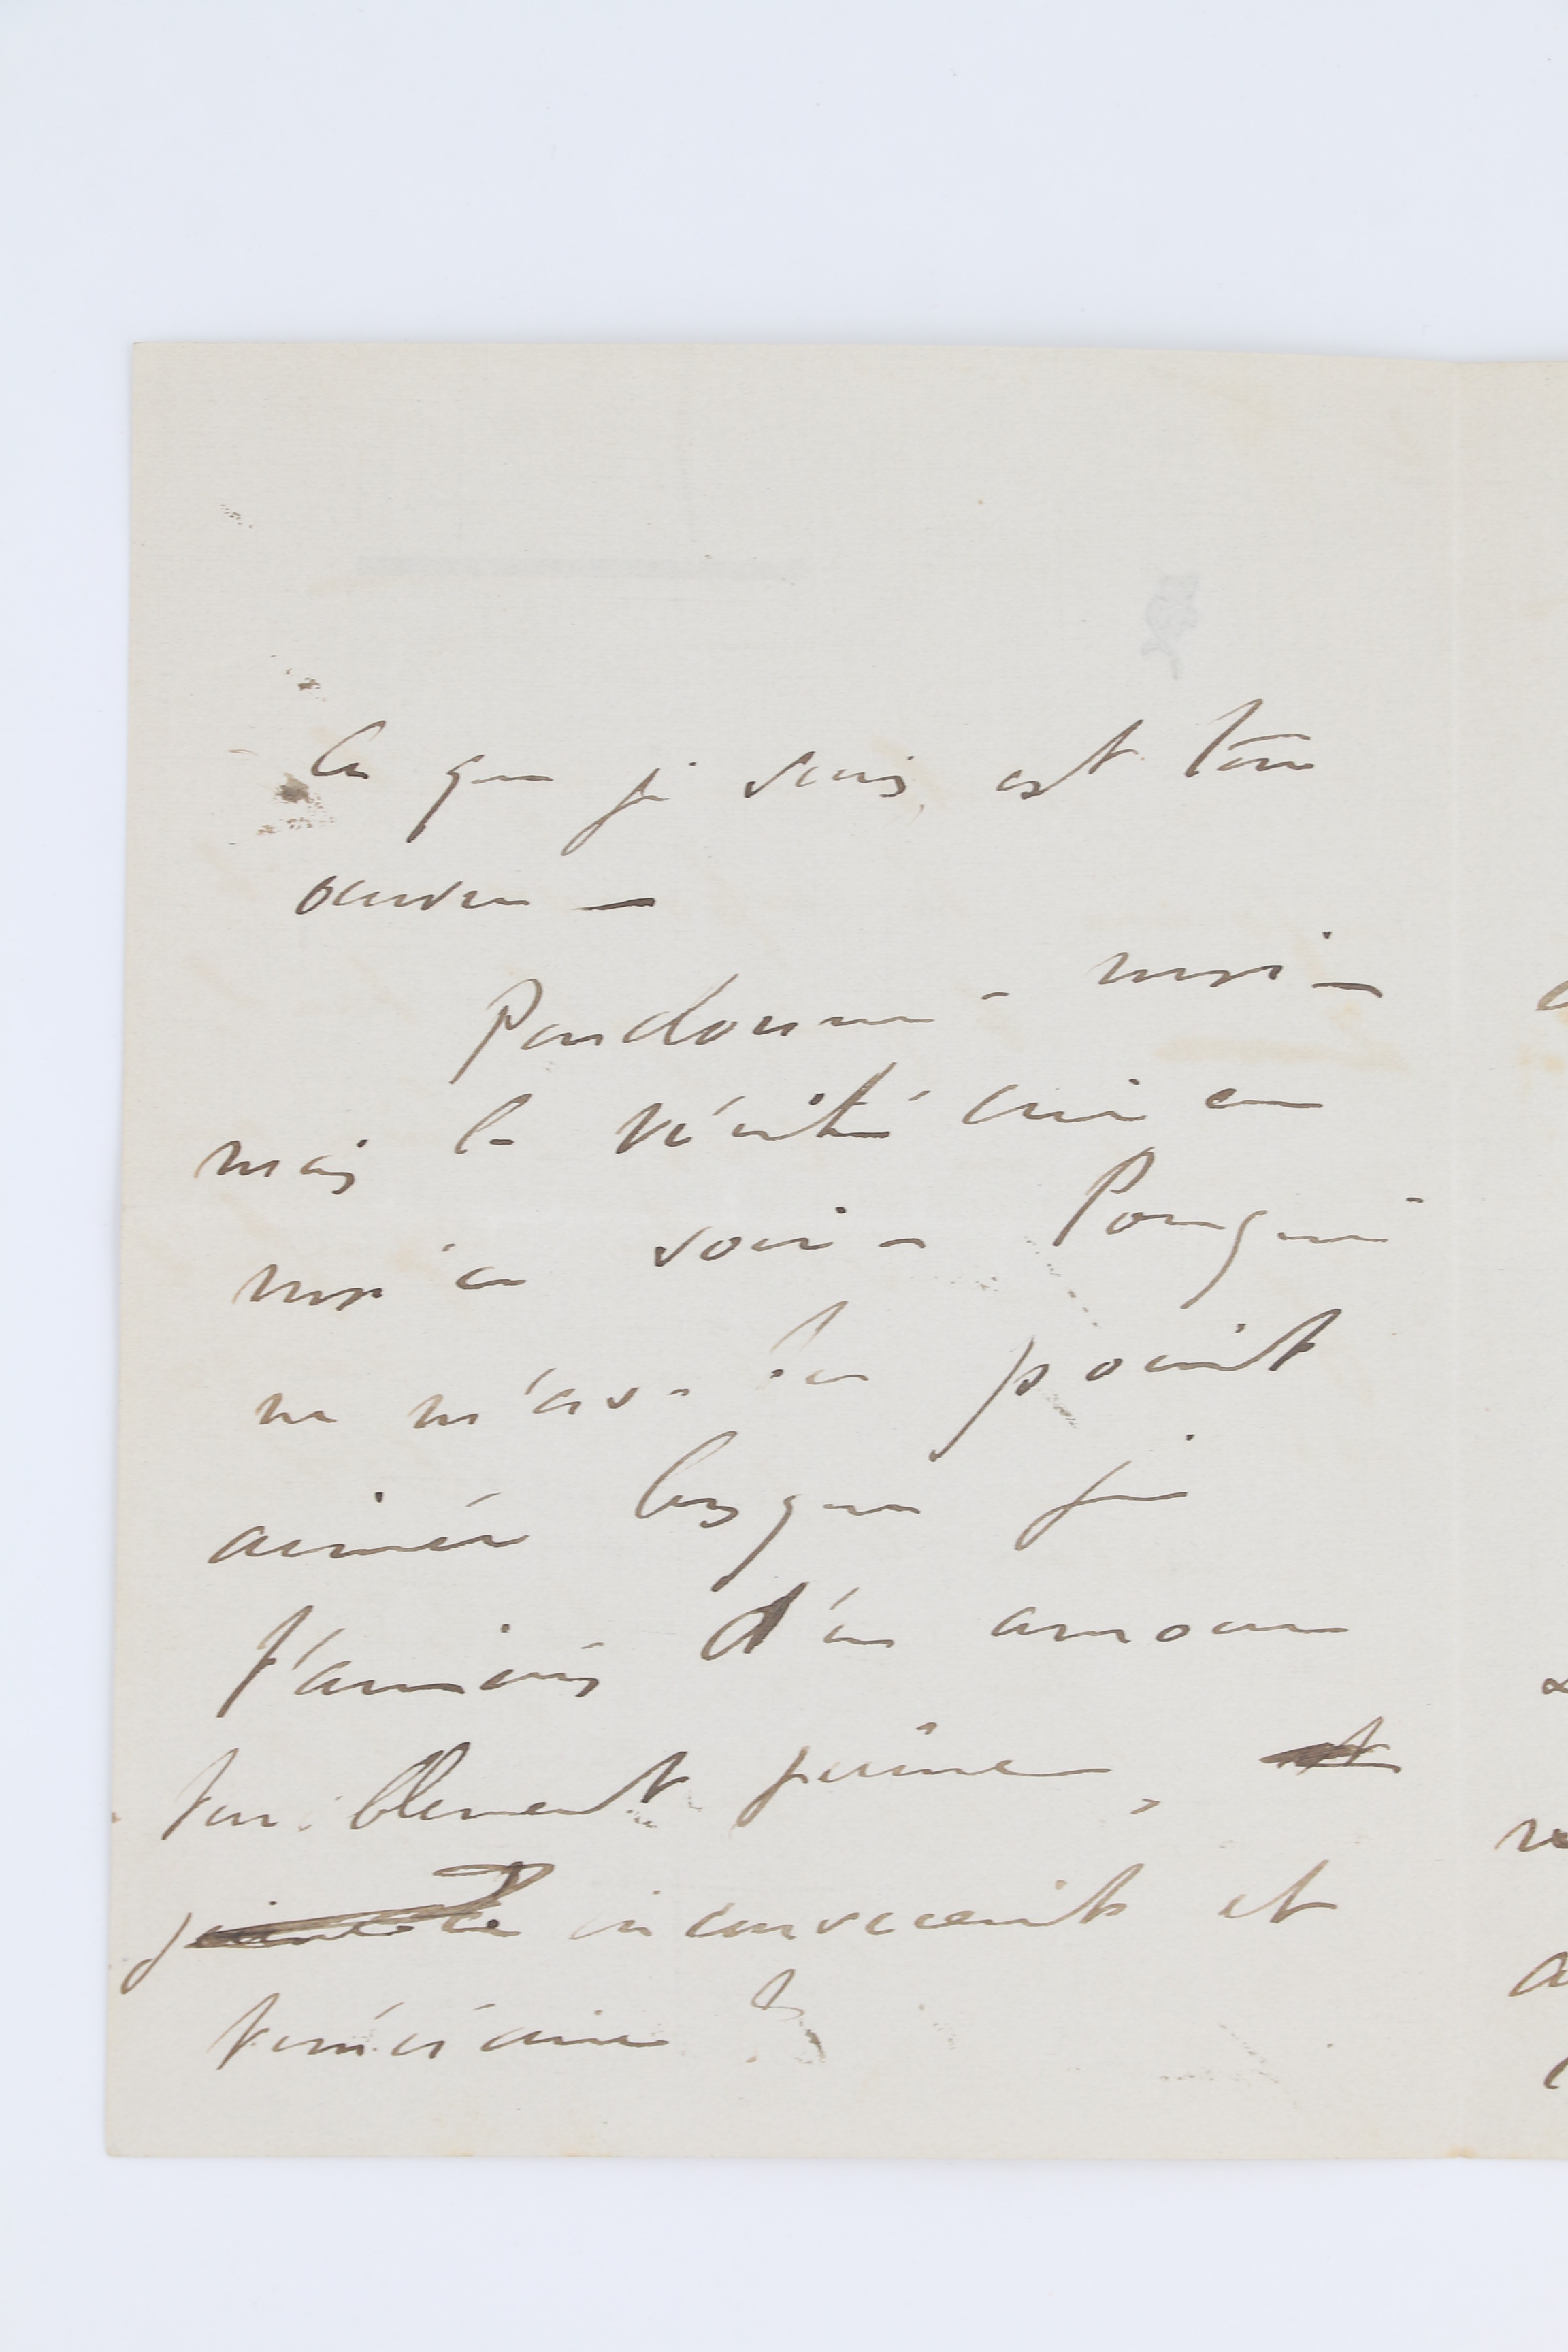 Ce que je suis, est ton
œuvre —
Pardonne - moi —
mais la vérité crie en
moi ce soir — Pourquoi
ne m'as-tu point
aimée lorsque je
t'aimais d'un amour
terriblement jeune, et
inconscient et
téméraire ?